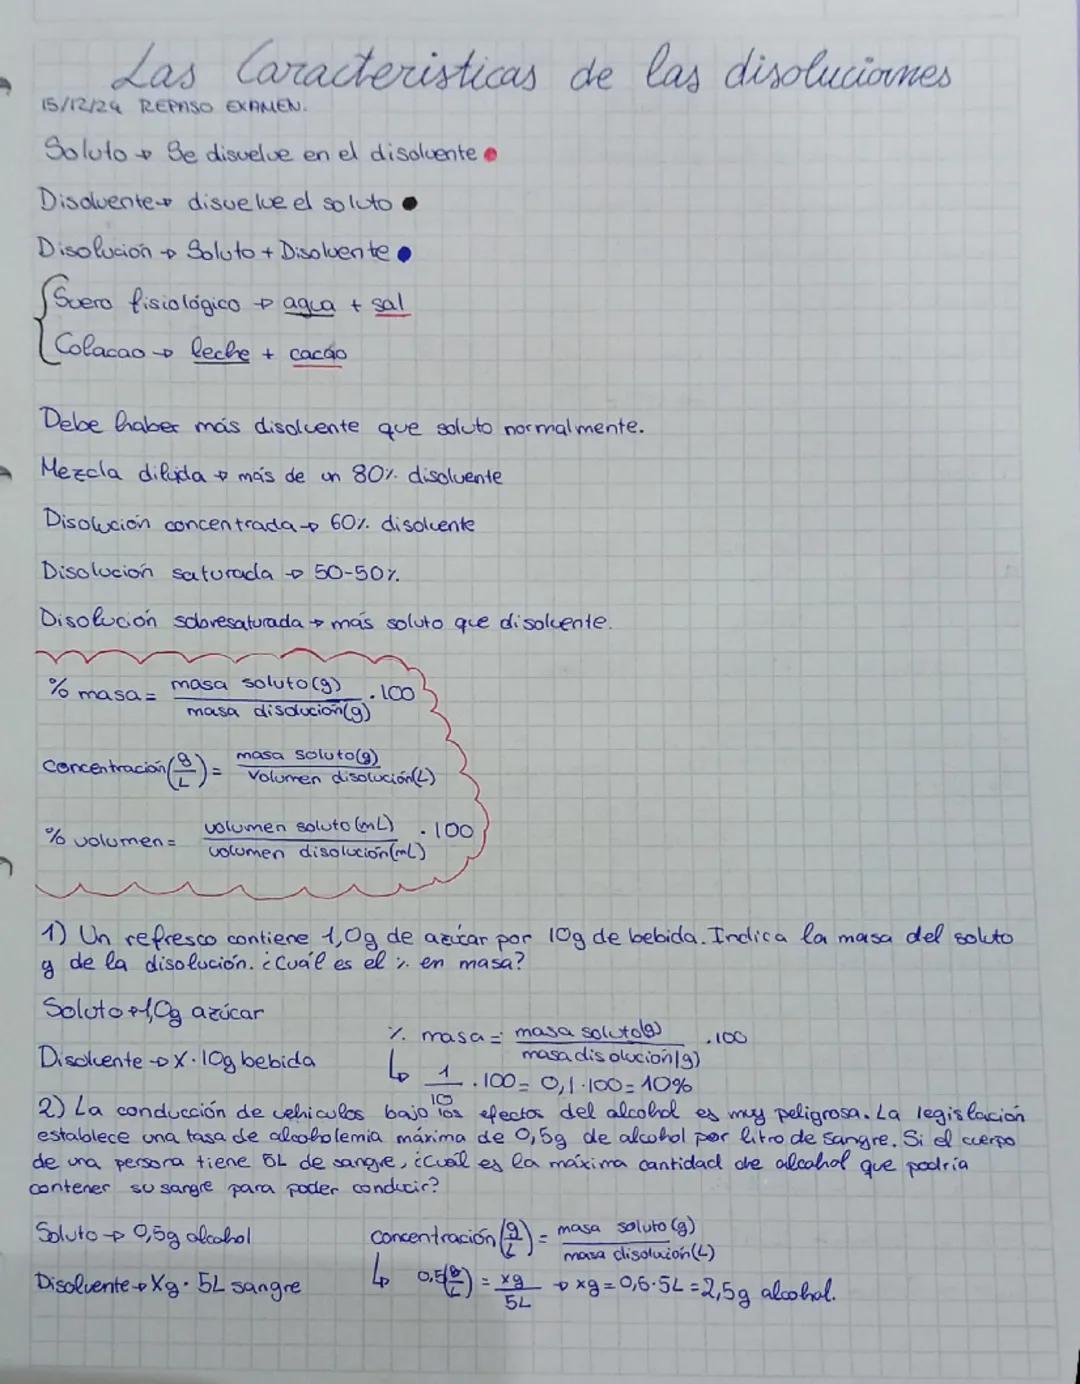 Las Caracteristicas de las disoluciones
15/12/24 REPASO EXAMEN.
Soluto → Se disuelve en el disolvente
Disolvente → disuelve el soluto
Disolución → Soluto + Disolvente
Suero fisiológico → agua + sal
Colacao → leche + cacao
Debe haber más disolvente que soluto normalmente.
Mezcla diluida → más de un 80% disolvente
Disolución concentrada → 60% disolvente
Disolución saturada → 50-50%.
Disolución sobresaturada → más soluto que disolvente.
% masa = masa soluto(g) / masa disolución(g) · 100
Concentración (g/L) = masa soluto(g) / Volumen disolución(L)
% volumen = volumen soluto (mL) / volumen disolución(mL) · 100
1) Un refresco contiene 1,0g de azúcar por 10g de bebida. Indica la masa del soluto
y de la disolución. ¿Cuál es el % en masa?
Soluto → 1,0g azúcar
% masa = masa soluto(g) / masa disolución(g) · 100
Disolvente → X · 10g bebida
↳ 1/10 · 100 = 0,1 · 100 = 10%
2) La conducción de vehiculos bajo los efectos del alcohol es muy peligrosa. La legislación
establece una tasa de alcoholemia máxima de 0,5g de alcohol por litro de sangre. Si el cuerpo
de una persona tiene 5L de sangre, ¿Cuál es la máxima cantidad de alcohol que podría
contener su sangre para poder conducir?
Soluto → 0,5g alcohol
Concentración (g/L) = masa soluto (g) / masa disolución (L)
Disolvente → Xg · 5L sangre
↳ 0,5 (g/L) = xg / 5L → xg = 0,5 · 5L = 2,5g alcohol.